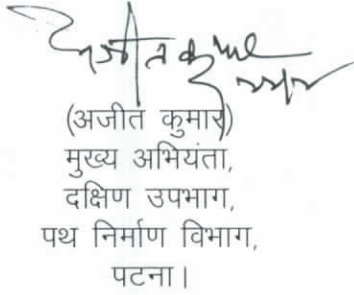 अजीत कुमार
(अजीत कुमार)
मुख्य अभियंता,
दक्षिण उपभाग,
पथ निर्माण विभाग,
पटना।